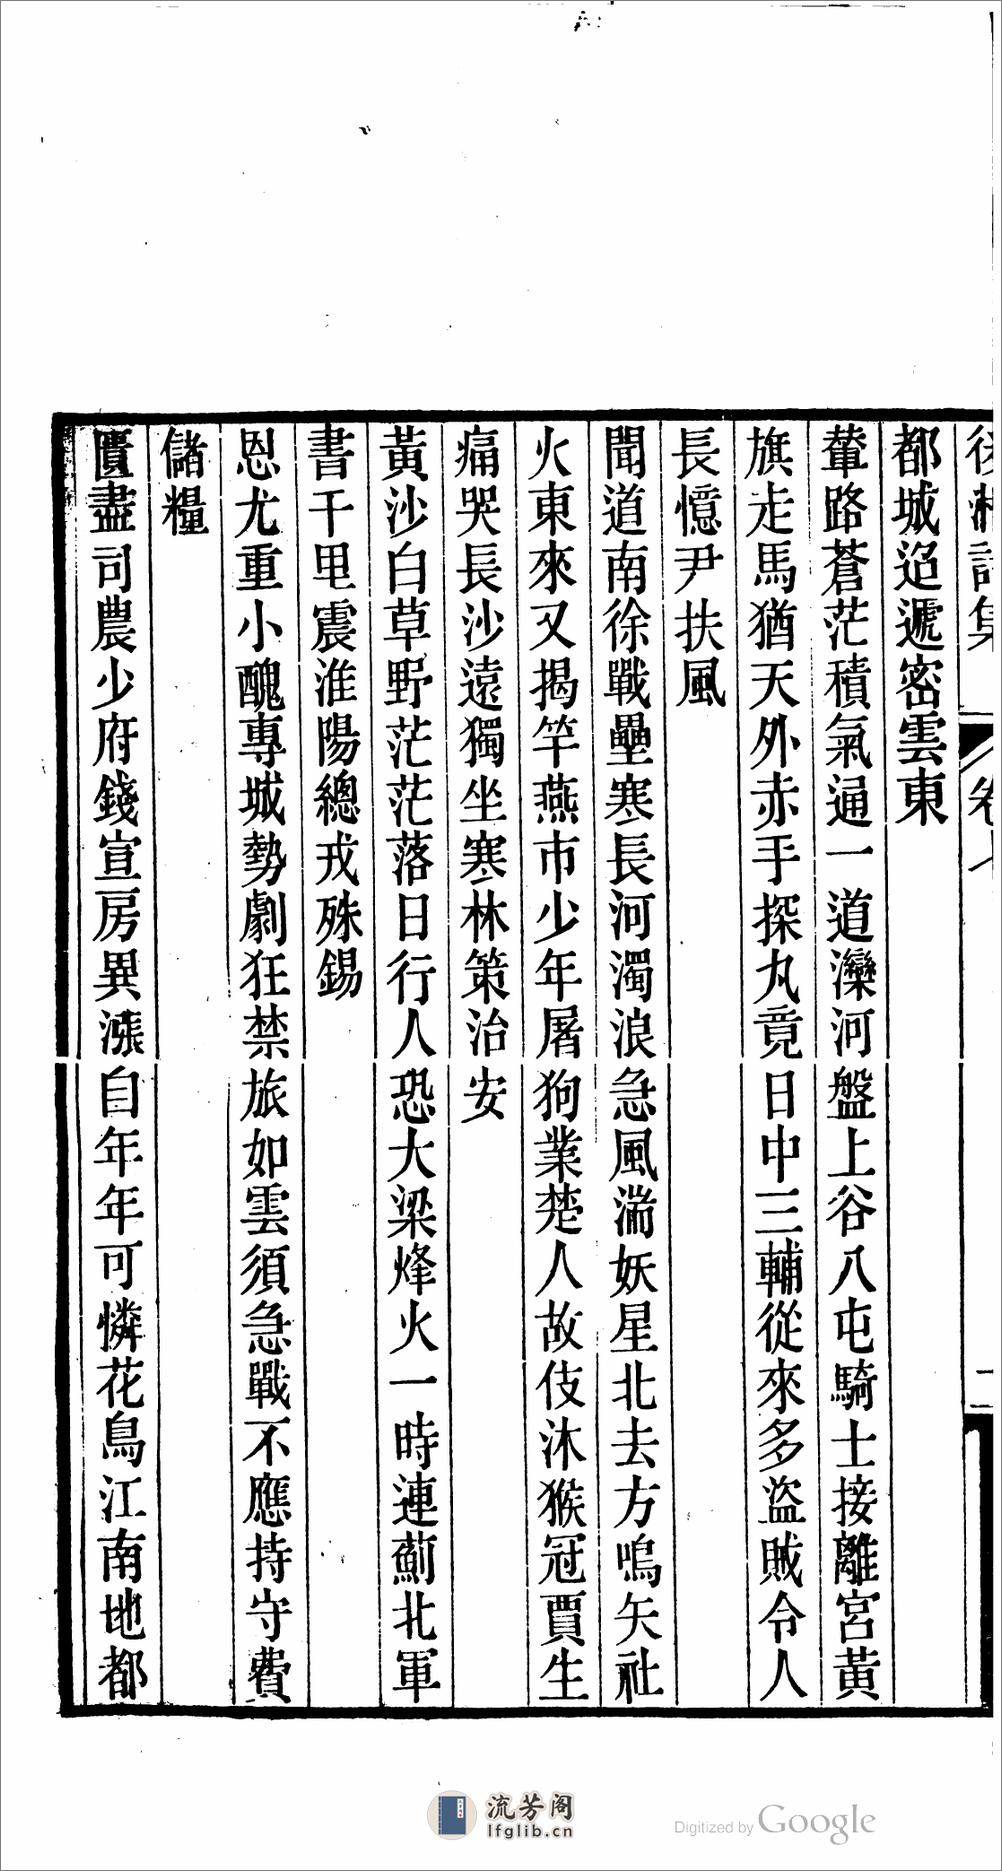 都城迢遞密雲東
輦路蒼茫積氣通一道灤河盤上谷八屯騎士接離宮黃
旗走馬猶天外赤手探丸竟日中三輔從來多盜賊令人
長憶尹扶風
聞道南徐戰壘寒長河濁浪急風湍妖星北去方鳴矢社
火東來又揭竿燕市少年屠狗業楚人故伎沐猴冠賈生
痛哭長沙遠獨坐寒林策治安
黃沙白草野茫茫落日行人恐大梁烽火一時連薊北軍
書千里震淮陽總戎殊錫
恩尤重小醜專城勢劇狂禁旅如雲須急戰不應持守費
儲糧
匱盡司農少府錢宣房異漲自年年可憐花鳥江南地都
流芳阁
lfglib.cn
Digitized by Google